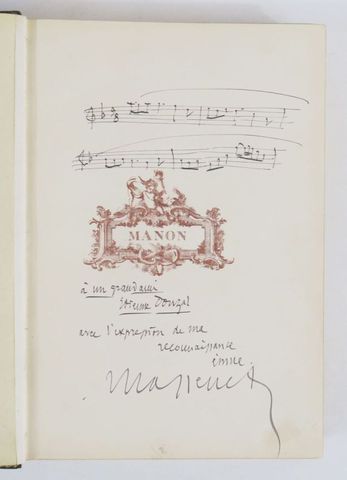 MANON
à un grand ami
avec l'expression de ma
reconnaissance
émue.
Massenet